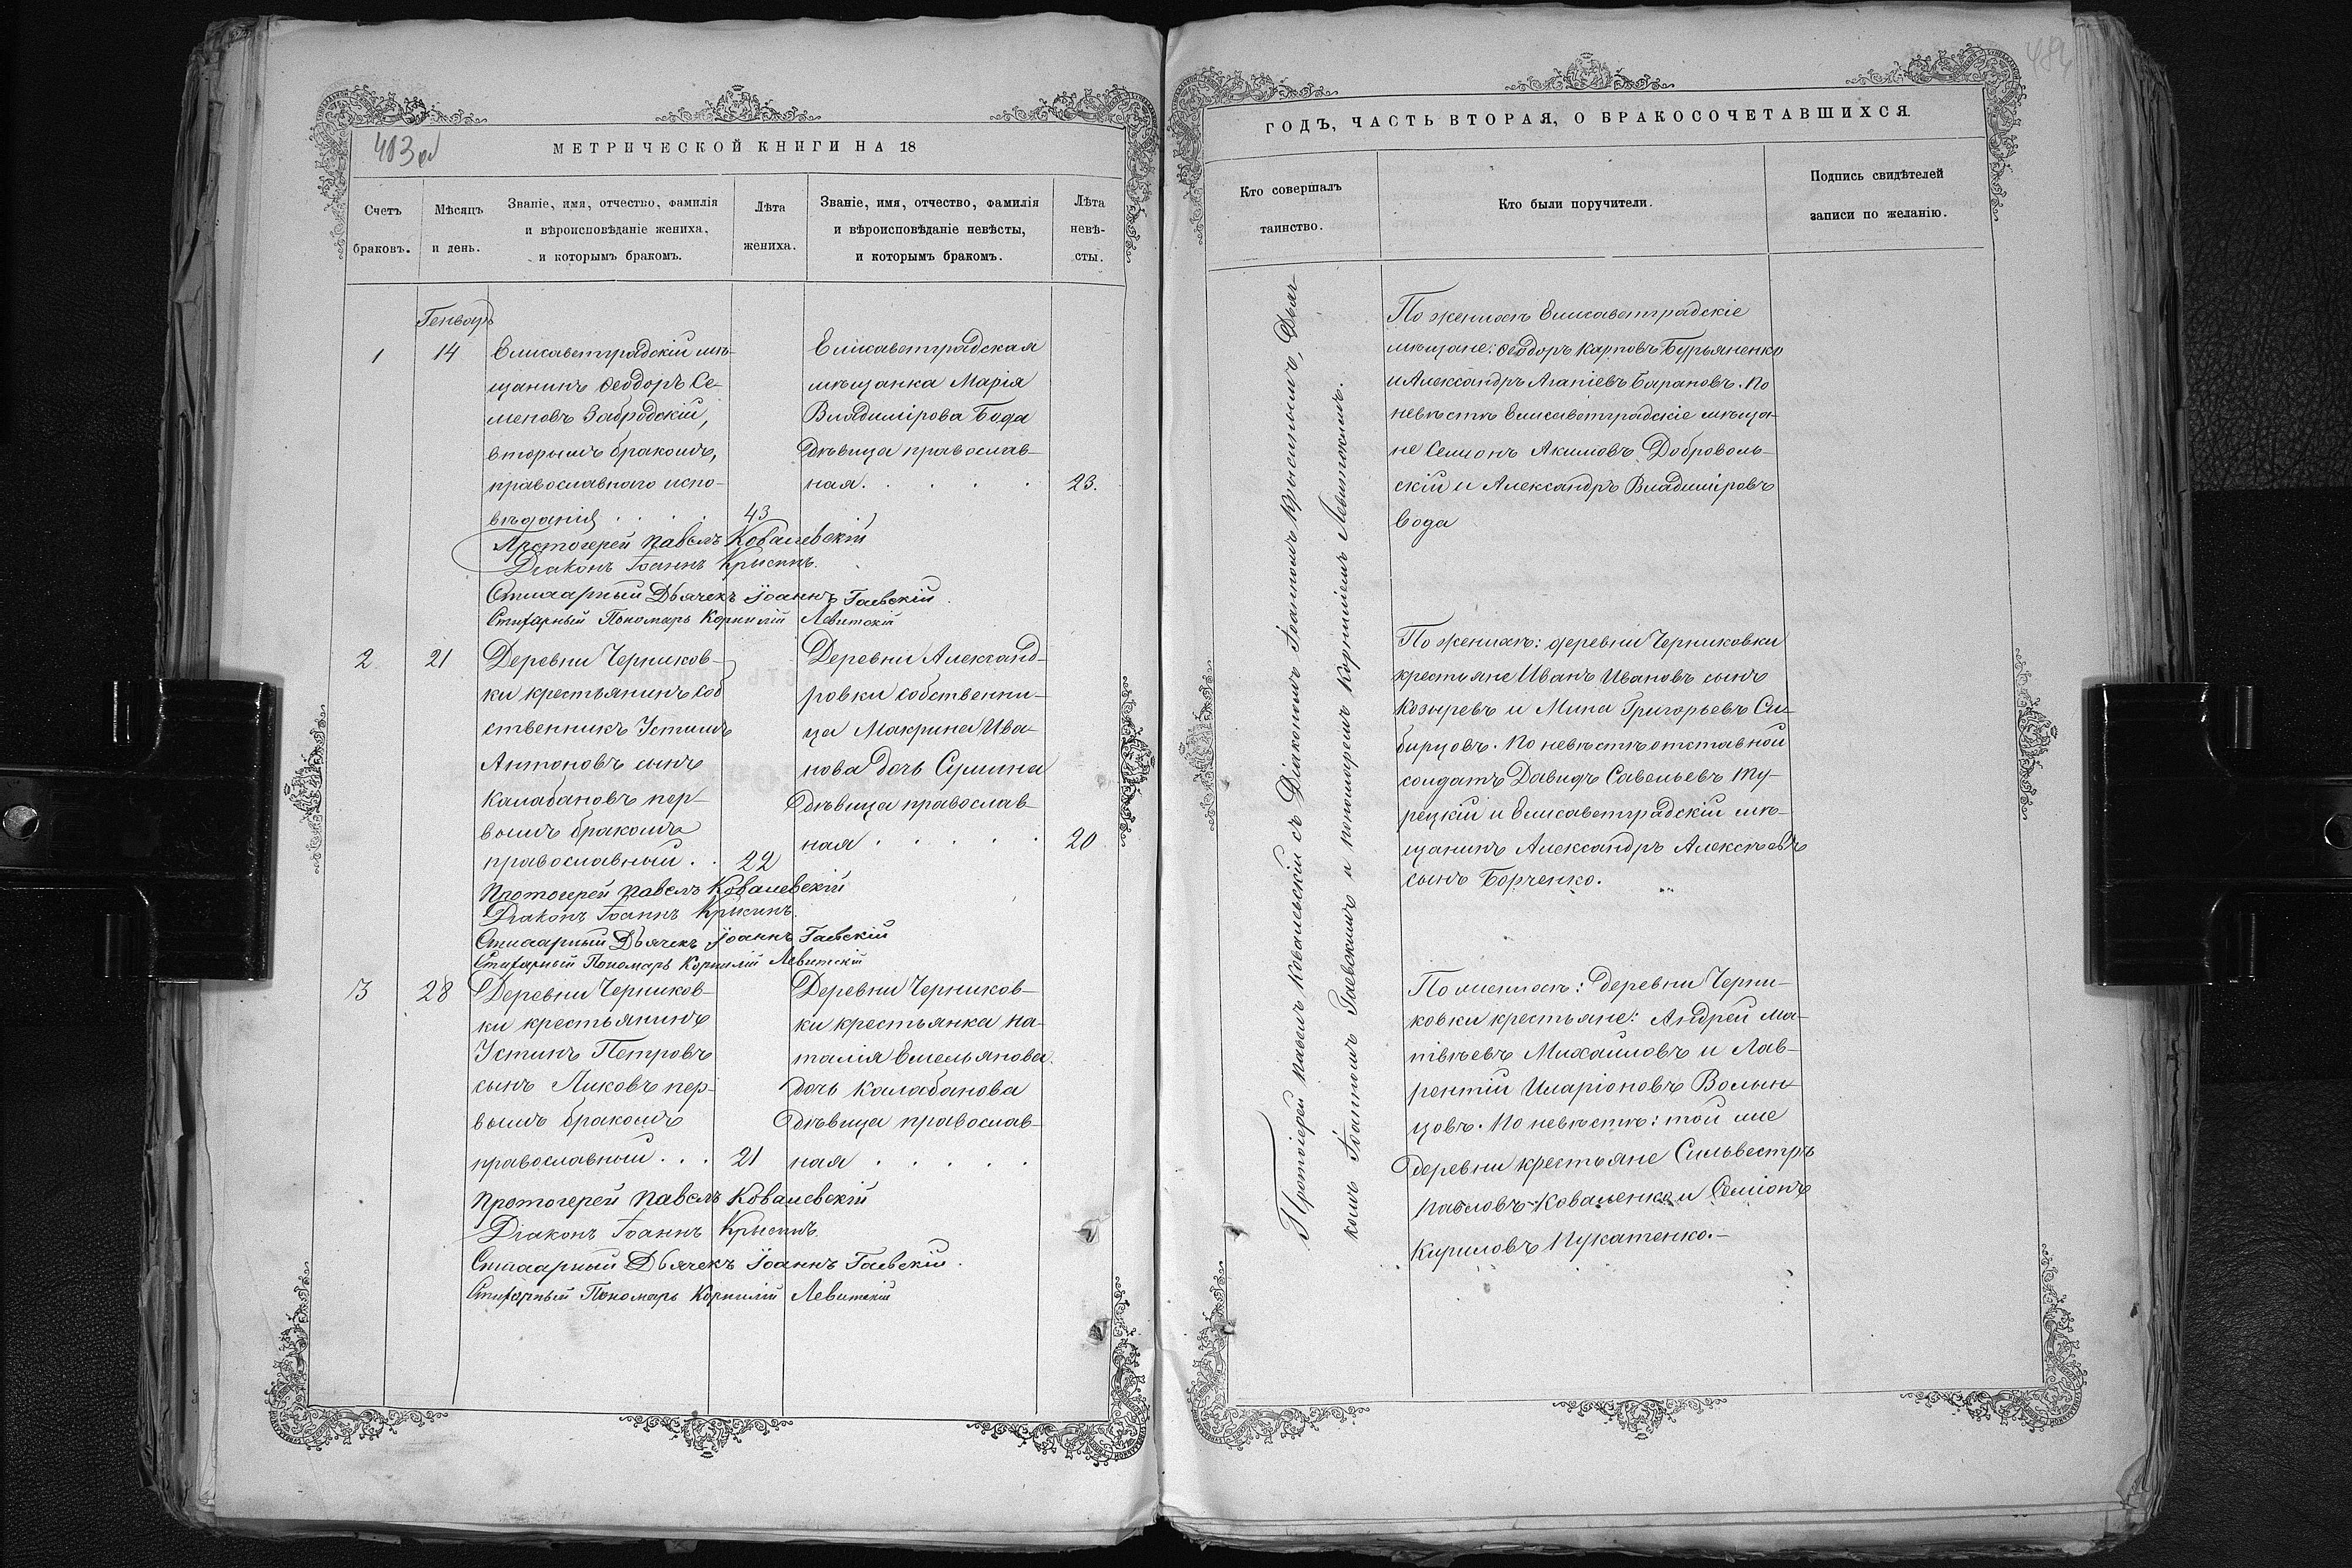 403 об
МЕТРИЧЕСКОЙ КНИГИ НА 18
Счетъ браковъ.
Мѣсяцъ и день.
Званіе, имя, отчество, фамилія
и вѣроисповѣданіе жениха,
и которымъ бракомъ.
Лѣта
жениха.
Званіе, имя, отчество, фамилія
и вѣроисповѣданіе невѣсты,
и которымъ бракомъ.
Лѣта
невѣ-
сты.
Генварь
1
14
Елисаветградскій мѣ-
щанинъ Ѳеодоръ Се-
меновъ Забродскій,
вторымъ бракомъ,
православнаго испо-
вѣданія . . . .
43
Елисаветградская
мѣщанка Марія
Владимірова Бода
дѣвица православ-
ная . . . . .
23.
Протоіерей Павелъ Ковалевскій
Діаконъ Іоаннъ Крысинъ.
Стихарный Дьячекъ Іоаннъ Гаевскій.
Стихарный Пономарь Корнилій Левитскій
2
21
Деревни Черников-
ки крестьянинъ соб
ственникъ Устимъ
Антоновъ сынъ
Калабановъ пер-
вымъ бракомъ
православный . .
22
Деревни Александ-
ровки собственни-
ца Макрина Ива-
нова дочь Сушина
дѣвица православ-
ная . . . . .
20
Протоіерей Павелъ Ковалевскій
Діаконъ Іоаннъ Крысинъ.
Стихарный Дьячекъ Іоаннъ Гаевскій
Стихарный Пономарь Корнилій Левитскій
3
28
Деревни Черников-
ки крестьянинъ
Устинъ Петровъ
сынъ Ликовъ пер-
вымъ бракомъ
православный . . .
21
Деревни Черников-
ки крестьянка На-
талія Емельянова
дочь Калабанова
дѣвица православ-
ная . . . . .
Протоіерей Павелъ Ковалевскій
Діаконъ Іоаннъ Крысинъ.
Стихарный Дьячекъ Іоаннъ Гаевскій.
Стихарный Пономарь Корнилій Левитскій
ГОДЪ, ЧАСТЬ ВТОРАЯ, О БРАКОСОЧЕТАВШИХСЯ.
Кто совершалъ
таинство.
Кто были поручители.
Подпись свидѣтелей
записи по желанію.
Протоіерей Павелъ Ковалевскій съ Діакономъ Іоанномъ Крысинымъ, Дьяч-
комъ Іоанномъ Гаевскимъ и пономаремъ Корниліемъ Левитскимъ.
По женихѣ Елисаветградскіе
мѣщане: Ѳеодоръ Карповъ Бурьяненко
и Александръ Агапіевъ Барановъ. По
невѣстѣ Елисаветградскіе мѣща-
не Семіонъ Акимовъ Доброволь-
скій и Александръ Владиміровъ
Бода
По женихѣ: деревни Черниковки
крестьяне Иванъ Ивановъ сынъ
Козыревъ и Мина Григорьевъ Си-
бирцовъ. По невѣстѣ отставной
солдатъ Давидъ Савельевъ Ту-
рецкій и Елисаветградскій мѣ-
щанинъ Александръ Алексѣевъ
сынъ Борченко.
По женихѣ: деревни Черни-
ковки крестьяне: Андрей Ма-
твѣевъ Михайловъ и Лав-
рентій Иларіоновъ Волын-
цовъ. По невѣстѣ: той же
деревни крестьяне Сильвестръ
Павловъ Коваленко и Семіонъ
Кириловъ Пукатенко.-